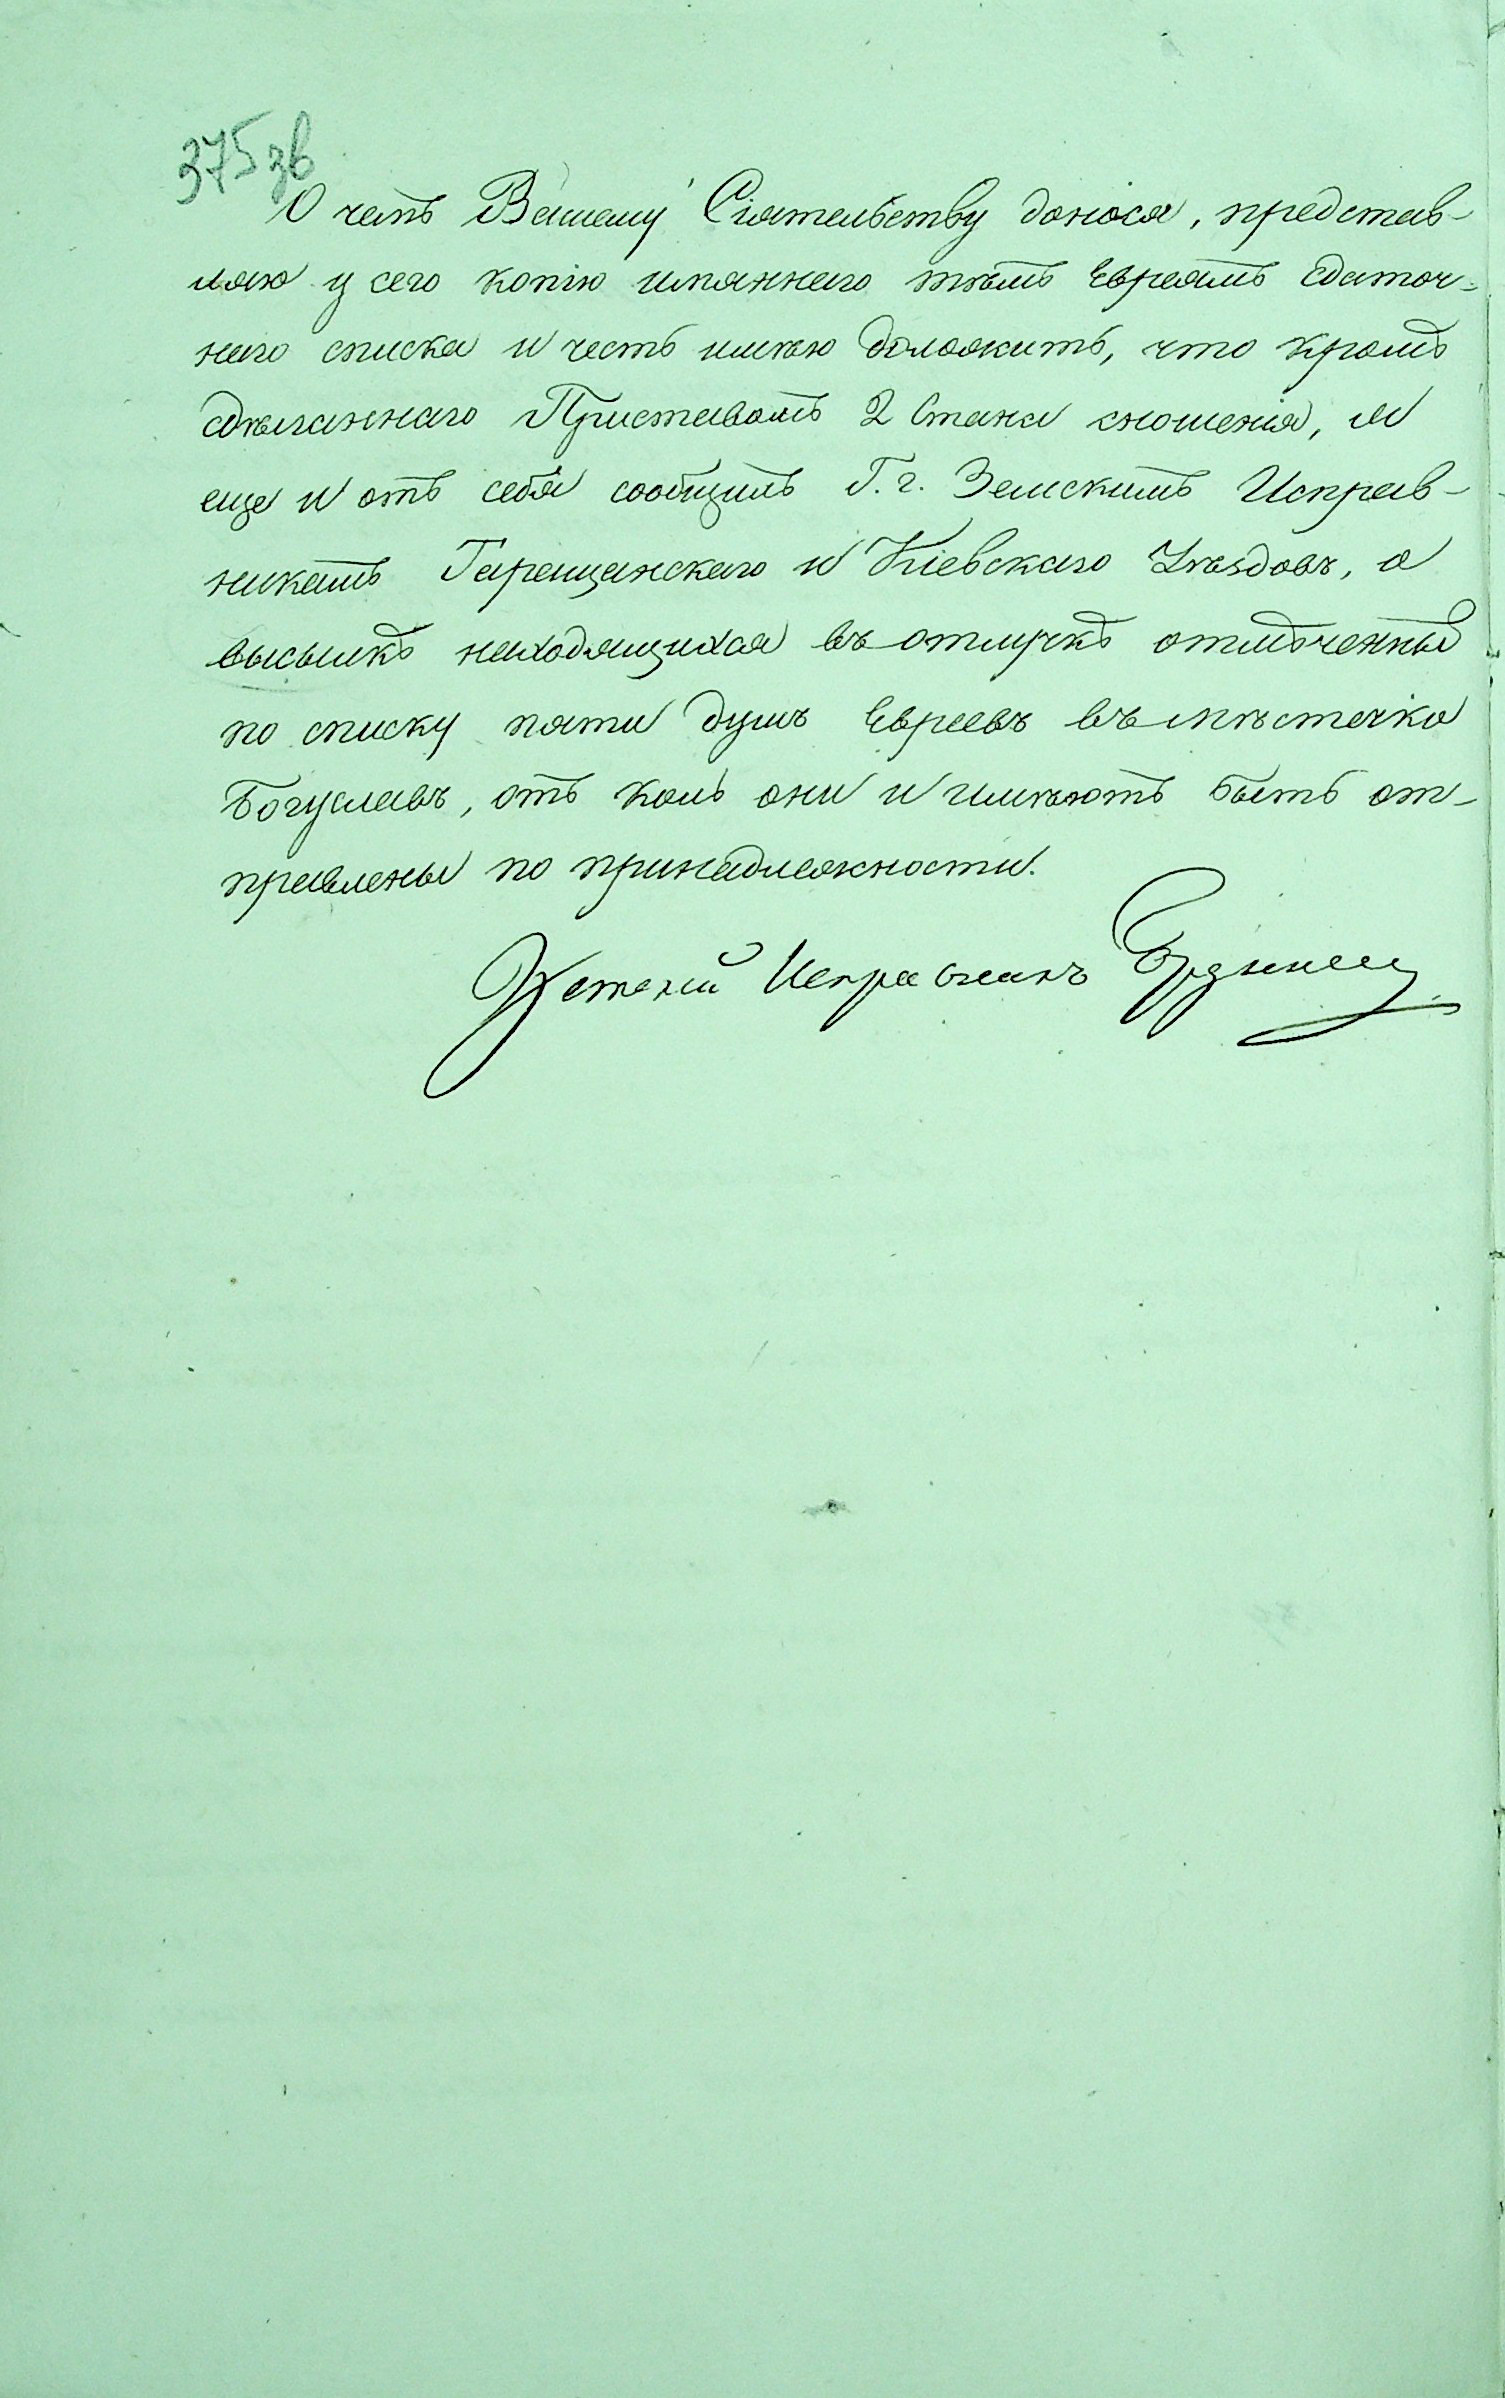 375 зв
О чемъ Вашему Сіятельству донося, представ-
ляю у сего копію имяннаго тѣмъ Евреямъ сдаточ-
наго списка и честь имѣю доложить, что кромѣ
сдѣланнаго Приставомъ 2 Стана сношенія, я
еще и отъ себя сообщилъ Г. г. Земскимъ Исправ-
никамъ Таращанскаго и Кіевскаго Уѣздовъ, о
высылкѣ находящихся въ отлучкѣ отмѣченныхъ
по списку пяти душъ Евреевъ въ мѣстечко
Богуславъ, отъ коль они и имѣютъ быть от-
правлены по принадлежности.
Земскій Исправникъ